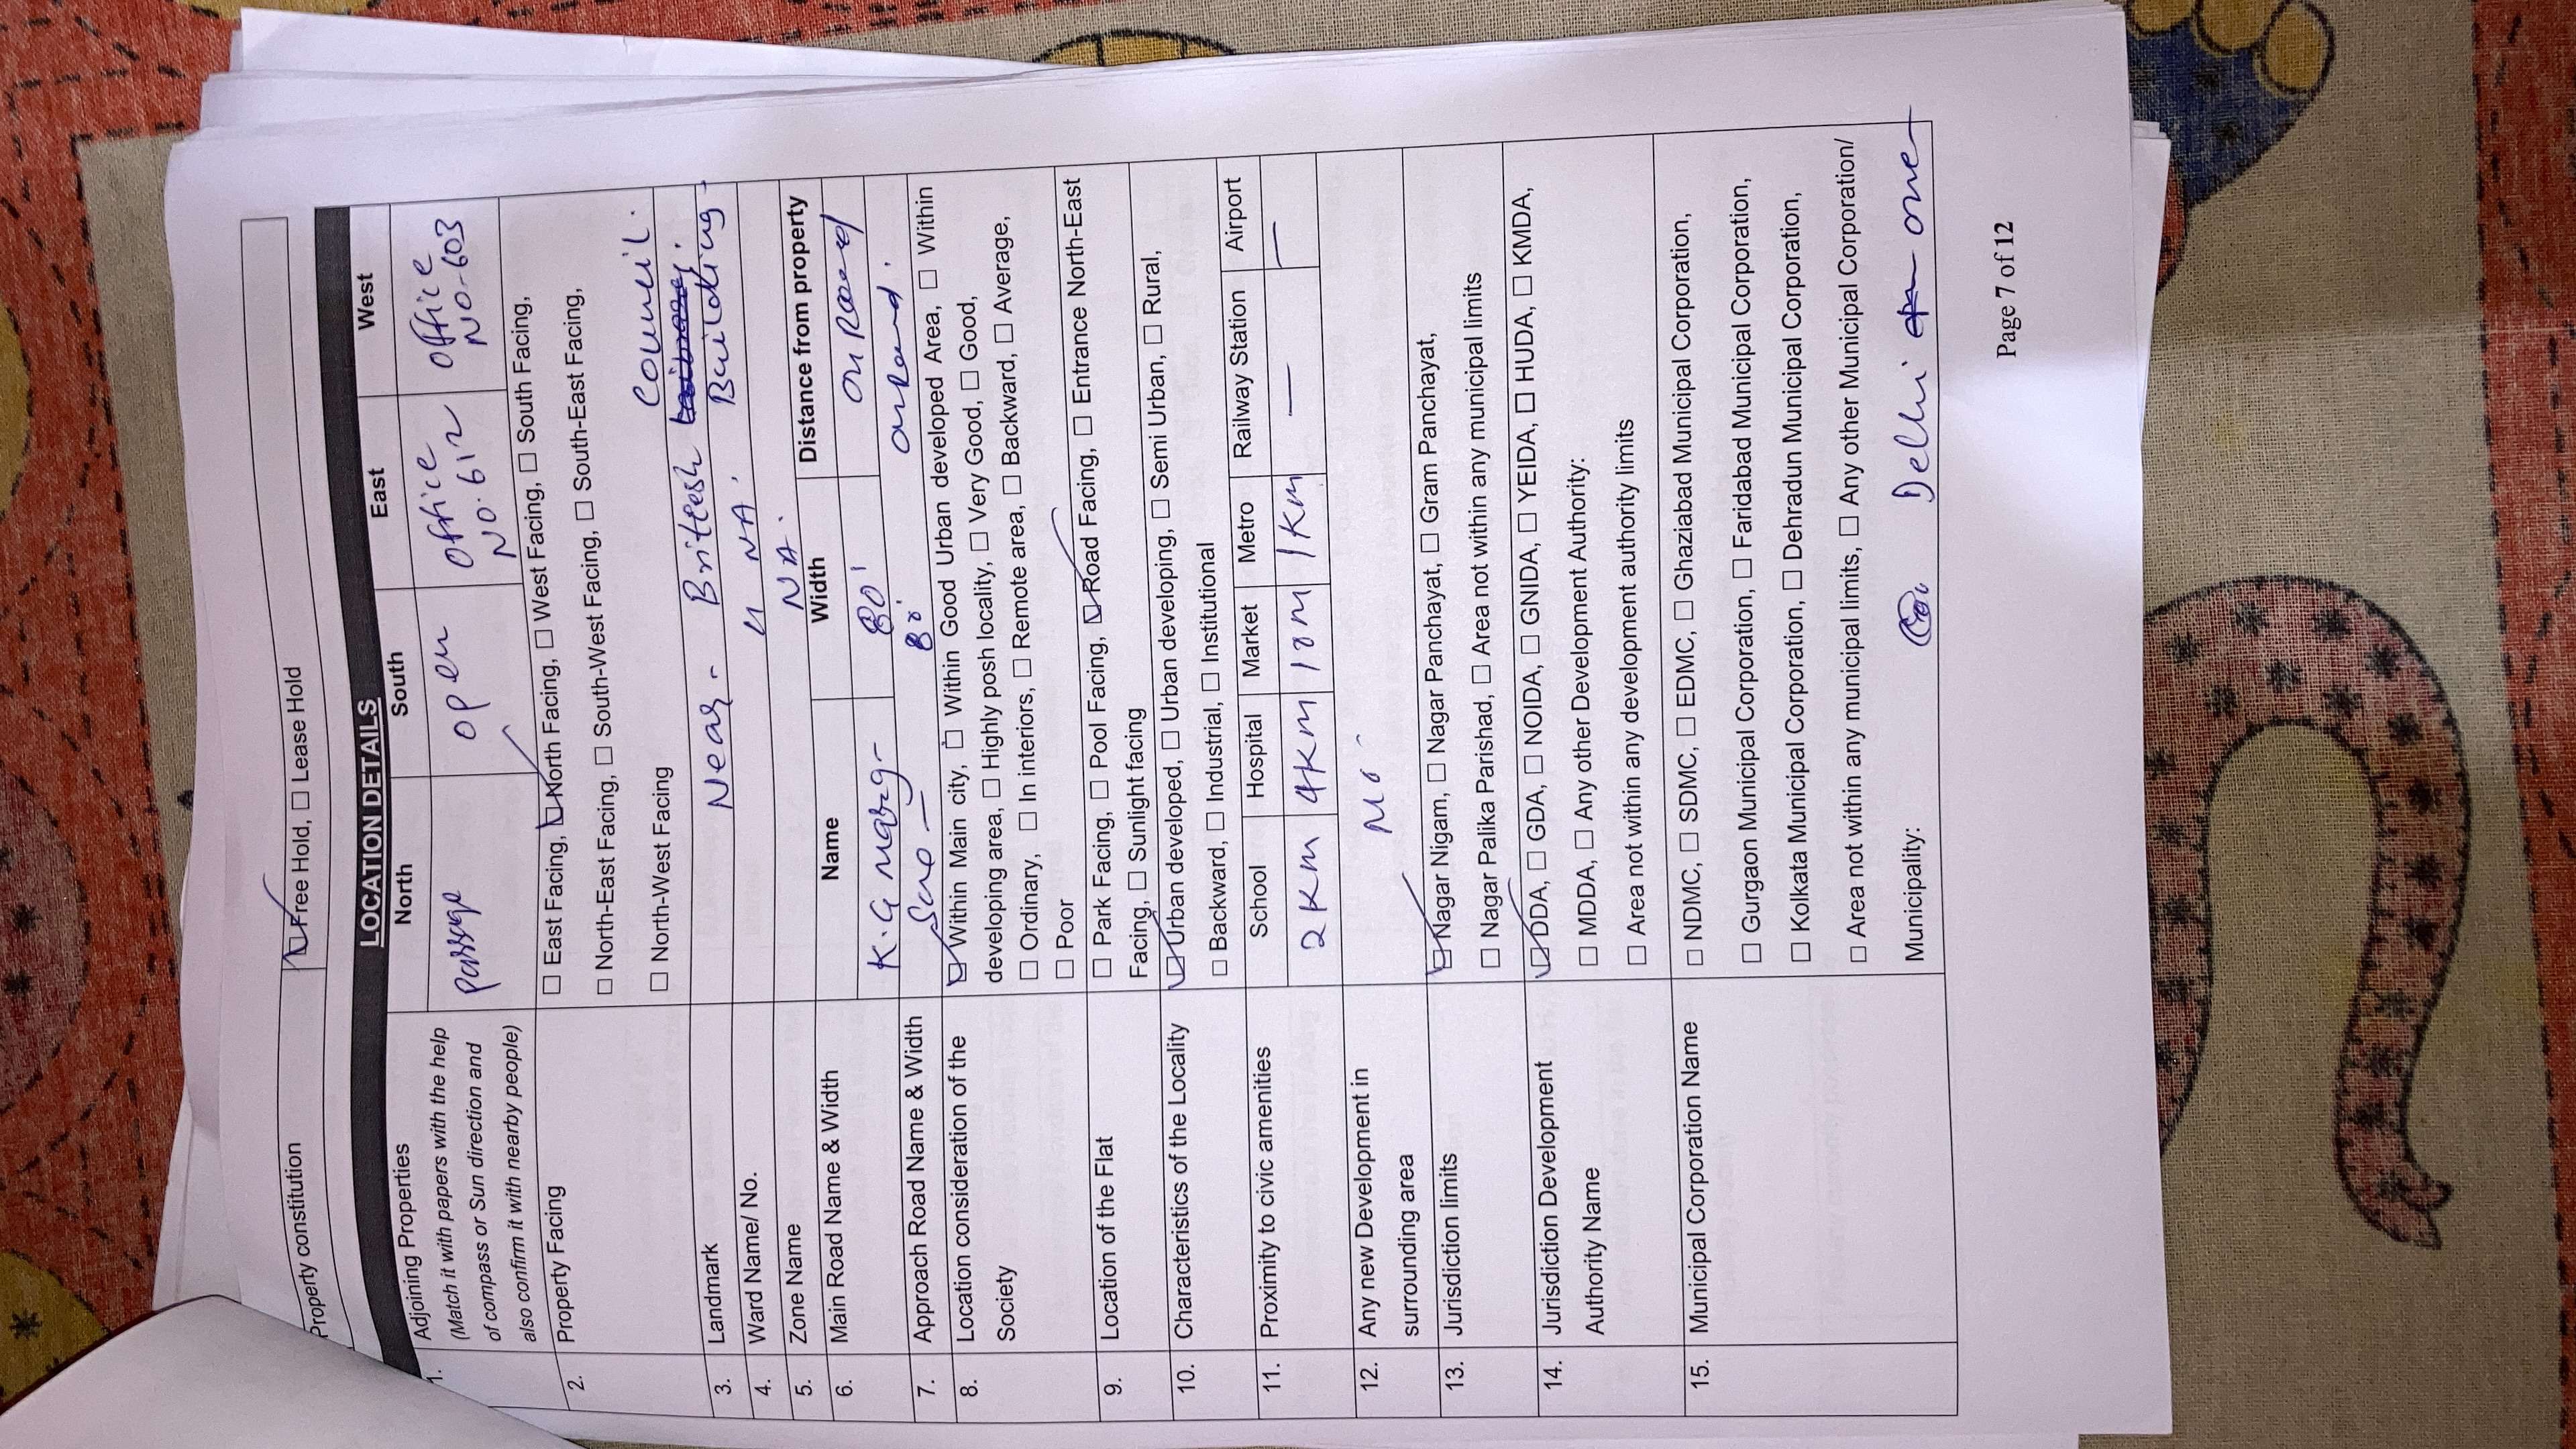 Property constitution ☑ Free Hold, ☐ Lease Hold
LOCATION DETAILS
1. Adjoining Properties North South East West
(Match it with papers with the help
of compass or Sun direction and
also confirm it with nearby people)
passage open office No. 612 office No-603
2. Property Facing ☐ East Facing, ☑ North Facing, ☐ West Facing, ☐ South Facing,
☐ North-East Facing, ☐ South-West Facing, ☐ South-East Facing,
☐ North-West Facing
Council.
3. Landmark Near - Britesh Building
4. Ward Name/ No. NA.
5. Zone Name NA.
Name Width Distance from property
6. Main Road Name & Width K.G marg- 80' on Road
7. Approach Road Name & Width 80'
8. Location consideration of the Society ☑ Within Main city, ☐ Within Good Urban developed Area, ☐ Within
developing area, ☐ Highly posh locality, ☐ Very Good, ☐ Good,
☐ Ordinary, ☐ In interiors, ☐ Remote area, ☐ Backward, ☐ Average,
☐ Poor
9. Location of the Flat ☐ Park Facing, ☐ Pool Facing, ☑ Road Facing, ☐ Entrance North-East
Facing, ☐ Sunlight facing
10. Characteristics of the Locality ☑ Urban developed, ☐ Urban developing, ☐ Semi Urban, ☐ Rural,
☐ Backward, ☐ Industrial, ☐ Institutional
11. Proximity to civic amenities School Hospital Market Metro Railway Station Airport
2 Km 4Km 10m 1Km — —
12. Any new Development in
surrounding area No
13. Jurisdiction limits ☑ Nagar Nigam, ☐ Nagar Panchayat, ☐ Gram Panchayat,
☐ Nagar Palika Parishad, ☐ Area not within any municipal limits
14. Jurisdiction Development
Authority Name ☑ DDA, ☐ GDA, ☐ NOIDA, ☐ GNIDA, ☐ YEIDA, ☐ HUDA, ☐ KMDA,
☐ MDDA, ☐ Any other Development Authority:
☐ Area not within any development authority limits
15. Municipal Corporation Name ☐ NDMC, ☐ SDMC, ☐ EDMC, ☐ Ghaziabad Municipal Corporation,
☐ Gurgaon Municipal Corporation, ☐ Faridabad Municipal Corporation,
☐ Kolkata Municipal Corporation, ☐ Dehradun Municipal Corporation,
☐ Area not within any municipal limits, ☐ Any other Municipal Corporation/
Municipality: Delhi one
Page 7 of 12